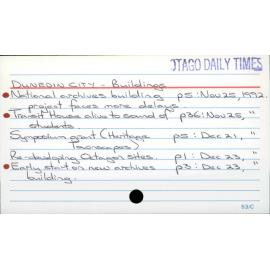 OTAGO DAILY TIMES
DUNEDIN CITY - Buildings
National archives building p5: Nov 25, 1992.
project faces more delays.
Transit House alive to sound of p36: Nov 25, "
students.
Symposium grant (Heritage p5: Dec 21, "
Townscapes)
Re-developing Octagon sites. p1: Dec 23, "
Early start on new archives p3: Dec 23, "
building.
53/C